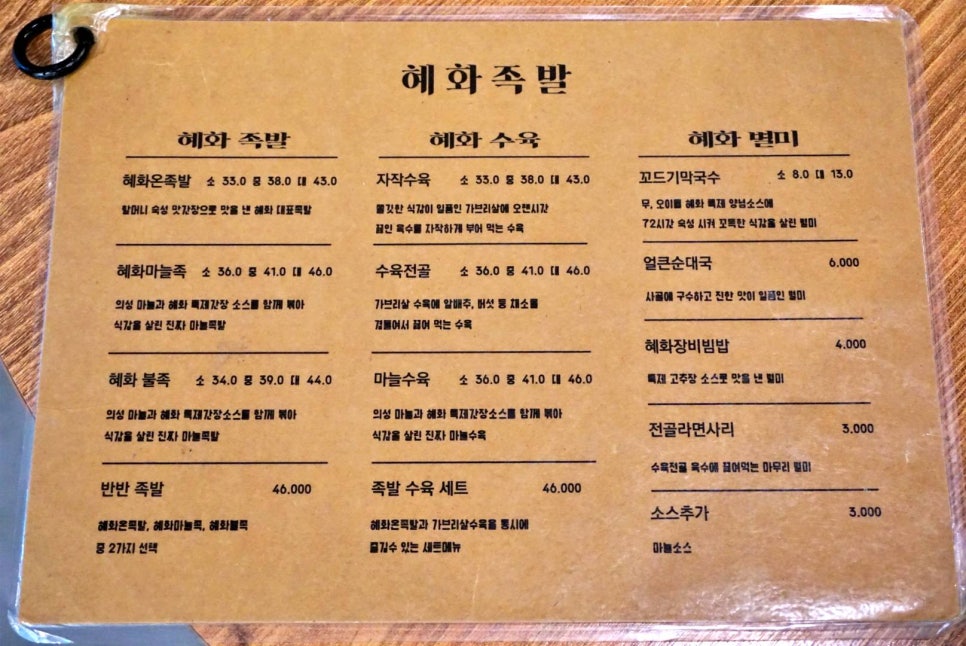 혜화족발
혜화 족발
혜화온족발 소 33.0 중 38.0 대 43.0
할머니 숙성 맛간장으로 맛을 낸 혜화 대표족발
혜화마늘족 소 36.0 중 41.0 대 46.0
의성 마늘과 혜화 특제간장 소스를 함께 볶아
식감을 살린 진짜 마늘족발
혜화 불족 소 34.0 중 39.0 대 44.0
의성 마늘과 혜화 특제간장소스를 함께 볶아
식감을 살린 진짜 마늘족발
반반 족발 46.000
혜화온족발, 혜화마늘족, 혜화불족
중 2가지 선택
혜화 수육
자작수육 소 33.0 중 38.0 대 43.0
쫄깃한 식감이 일품인 가브리살에 오랜시간
끓인 육수를 자작하게 부어 먹는 수육
수육전골 소 36.0 중 41.0 대 46.0
가브리살 수육에 알배추, 버섯 등 채소를
곁들여서 끓여 먹는 수육
마늘수육 소 36.0 중 41.0 대 46.0
의성 마늘과 혜화 특제간장소스를 함께 볶아
식감을 살린 진짜 마늘수육
족발 수육 세트 46.000
혜화온족발과 가브리살수육을 동시에
즐길수 있는 세트메뉴
혜화 별미
꼬드기막국수 소 8.0 대 13.0
무, 오이를 혜화 특제 양념소스에
72시간 숙성 시켜 꼬독한 식감을 살린 별미
얼큰순대국 6.000
사골에 구수하고 진한 맛이 일품인 별미
혜화장비빔밥 4.000
특제 고추장 소스로 맛을 낸 별미
전골라면사리 3.000
수육전골 육수에 끓여먹는 마무리 별미
소스추가 3.000
마늘소스